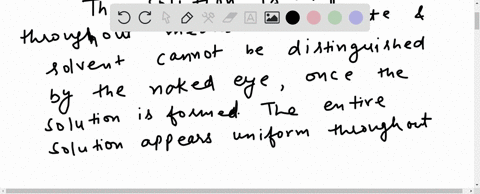 Th
throughout te &
solvent cannot be distinguished
by the naked eye, once the
solution is formed. The entire
solution appears uniform throughout